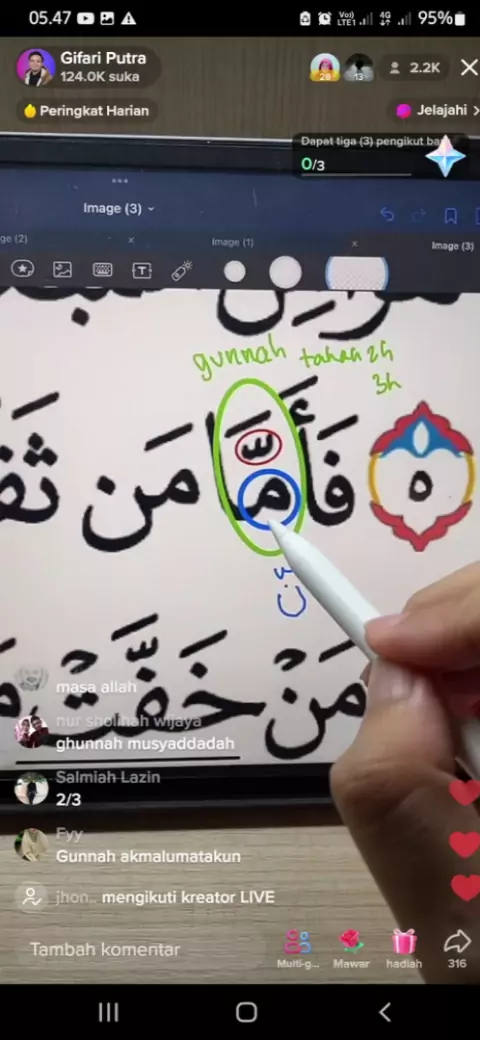 05.47
Vo)) LTE1 4G 95%
Gifari Putra
124.0K suka
28 13 2.2K
Peringkat Harian
Jelajahi
Dapat tiga (3) pengikut ba
0/3
Image (3)
ge (2) Image (1) Image (3)
gunnah tahan 2h
3h
٥ فَأَمَّا مَن ثَق
مَنْ خَفَّتْ
masa allah
nur sholihah wijaya
ghunnah musyaddadah
Salmiah Lazin
2/3
Fyy
Gunnah akmalumatakun
jhon.. mengikuti kreator LIVE
Tambah komentar
Multi-g... Mawar hadiah 316